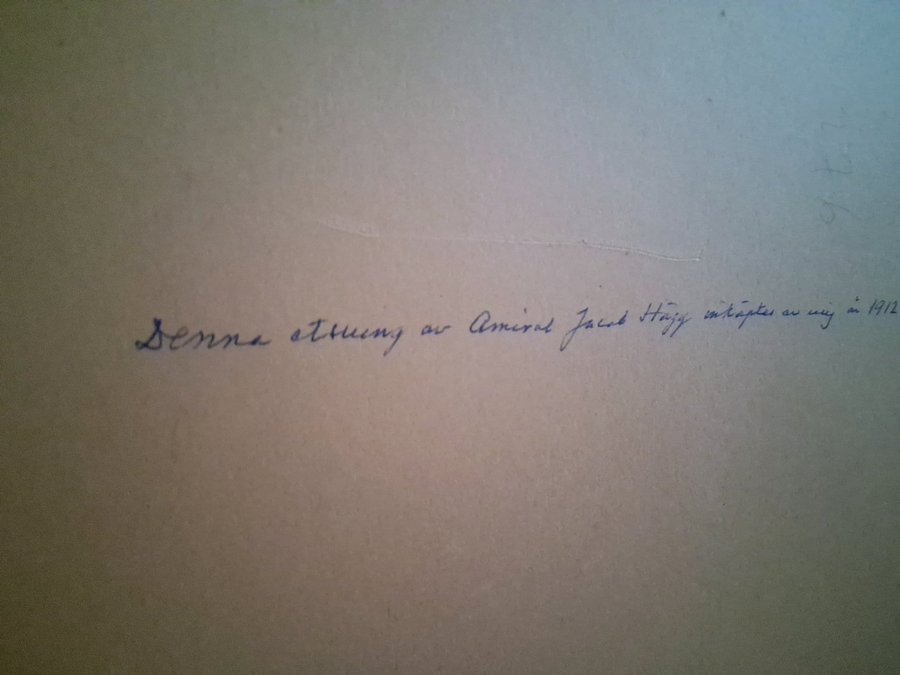 Denna etsning av Amiral Jacob Hägg inköptes av mig år 1912